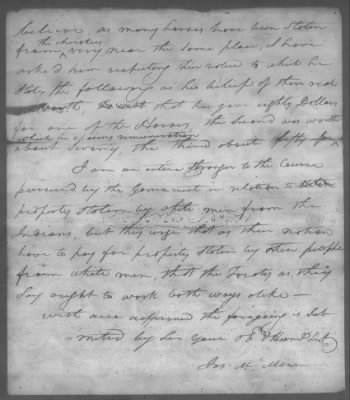 believe as many horses have been stolen
the
from very near the same place, I have
ask'd him respecting their value to which he
the following as his belief of their real
that he gave eighty Dollars
for one of the Horses, the second was worth
which he
about seventy the third about fifty
I am an entire stranger to the Course
pursued by the Government in relation to
property stolen by white men from the
Indians, but this urge that as their nation
have to pay for property stolen by their people
from white men, that the as they
say ought to work both ways alike —
the foregoing is sub
=mitted by Sir your
Jas. Mc